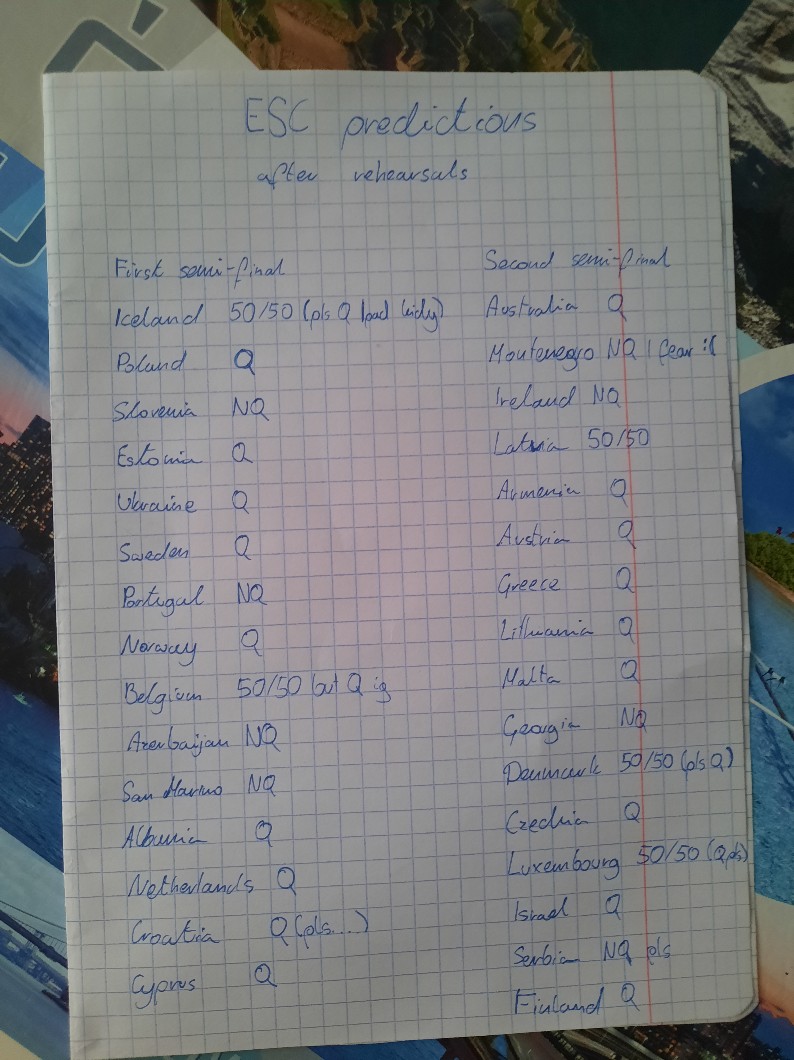 ESC predictions
after rehearsals
First semi-final
Iceland 50/50 (pls Q
Poland Q
Slovenia NQ
Estonia Q
Ukraine Q
Sweden Q
Portugal NQ
Norway Q
Belgium 50/50 but Q ig
Azerbaijan NQ
San Marino NQ
Albania Q
Netherlands Q
Croatia Q (pls...)
Cyprus Q
Second semi-final
Australia Q
Montenegro NQ I fear :(
Ireland NQ
Latvia 50/50
Armenia Q
Austria Q
Greece Q
Lithuania Q
Malta Q
Georgia NQ
Denmark 50/50 (pls Q)
Czechia Q
Luxembourg 50/50 (Q pls)
Israel Q
Serbia NQ pls
Finland Q